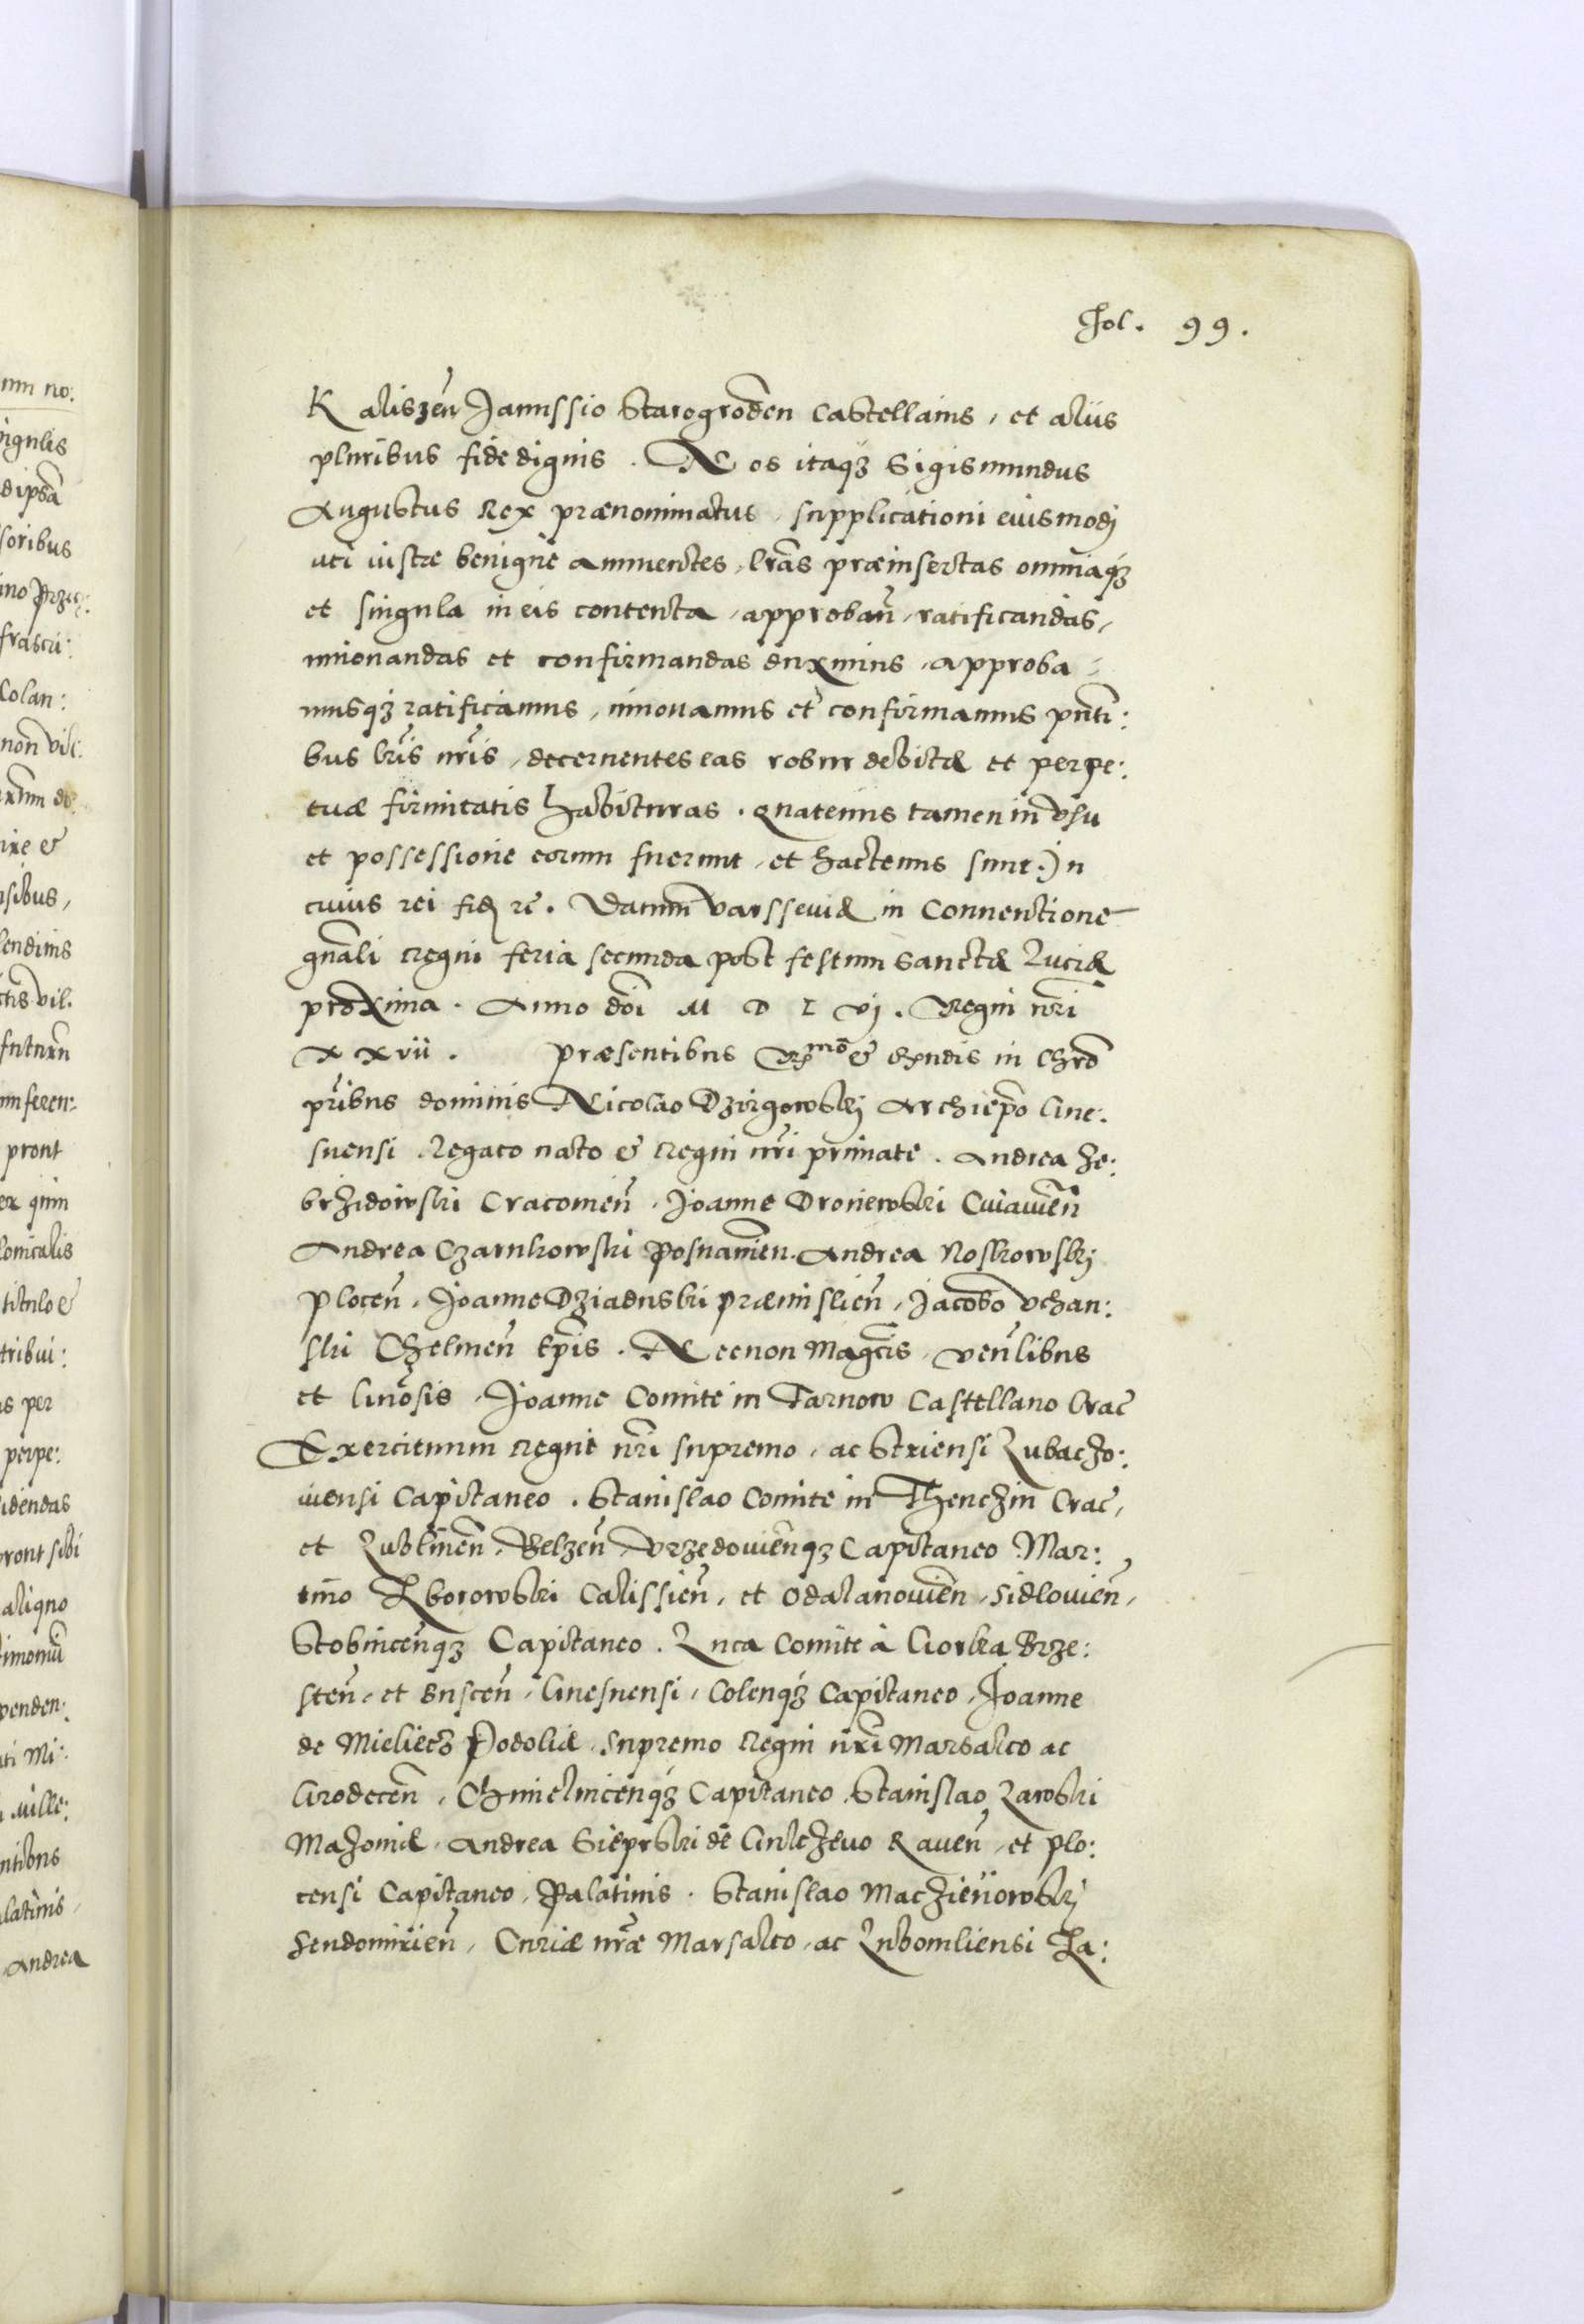 Fol. 99.
Kaliszeñ Janussio Starogrodeñ Castellanis, et aliis
pluribus fide dignis. Nos itaqȝ Sigismundus
Augustus Rex prænominatus, supplicationi eiusmodj
uti iustæ benigne annuentes, lr̃as præinsertas omniaqȝ
et singula in eis contenta, approbañ, ratificandas,
innouandas et confirmandas duximus, approba-
musqȝ ratificamus, innouamus et confirmamus pñti:
bus lr̃is nr̃is, decernentes eas robur debitæ et perpe:
tuæ firmitatis habituras. quatenus tamen in vsu
et possessione eorum fuerunt, et hactenus sunt. In
cuius rei fidē rc̃. Datum Varsseuiæ in Conuentione
gñali Regni feria secunda post festum Sanctæ Luciæ
proxima. Anno dñi M D L vj. Regni nr̃i
xxvii. Præsentibus R̃mo & Rx̃ndis in Chrõ
pr̃ibus dominis Nicolao Dzirgowskj Archiepõ Gne:
snensi Legato nato & Regni nr̃i primate. Andrea Ze:
brzidowski Cracouieñ, Joanne Droiewski Cuiauieñ
Andrea Czarnkowski Posnanieñ. Andrea Noskowskj
Ploceñ, Joanne Dziaduski Præmislieñ, Jacobo Vchan:
ski Chelmeñ Epĩs. Necnon Magcĩs, veñlibus
et Gnõsis, Joanne Comite in Tarnow Castellano Crac̃
Exercituum Regni nr̃i supremo, ac Striensi Lubaczo:
uiensi Capitaneo. Stanislao Comite in Thenczin Crac̃,
et Lublineñ, Belzeñ, Vrzedouieñqȝ Capitaneo. Mar:
tino Zborowski Calissieñ, et Odalanouieñ, Sidlouieñ,
Stobniceñqȝ Capitaneo. Luca Comite à Gorka Brze:
steñ, et Busceñ, Gnesnensi, Coleñqȝ Capitaneo, Joanne
de Mieliecz Podoliæ, Supremo Regni nr̃i Marsalco ac
Grodeceñ, Chmielniceñqȝ Capitaneo. Stanislao Lawski
Mazouiæ, Andrea Sieprski de Gulczewo Raueñ, et Plo:
censi Capitaneo, Palatinis. Stanislao Macziejowskj
Sendomirieñ, Curiæ nr̃æ Marsalco, ac Lubomliensi Za: